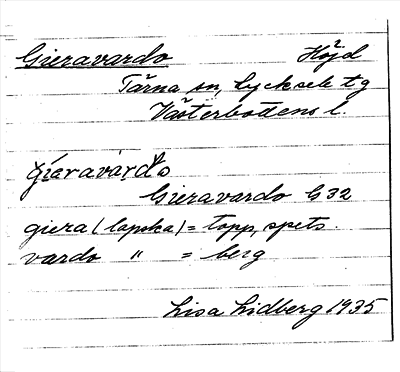 Gieravardo Höjd
Tärna sn, Lycksele tg
Västerbottens l.
Gieravardo G 32
giera (lapska) = topp, spets.
vardo " = berg
Lisa Lidberg 1935